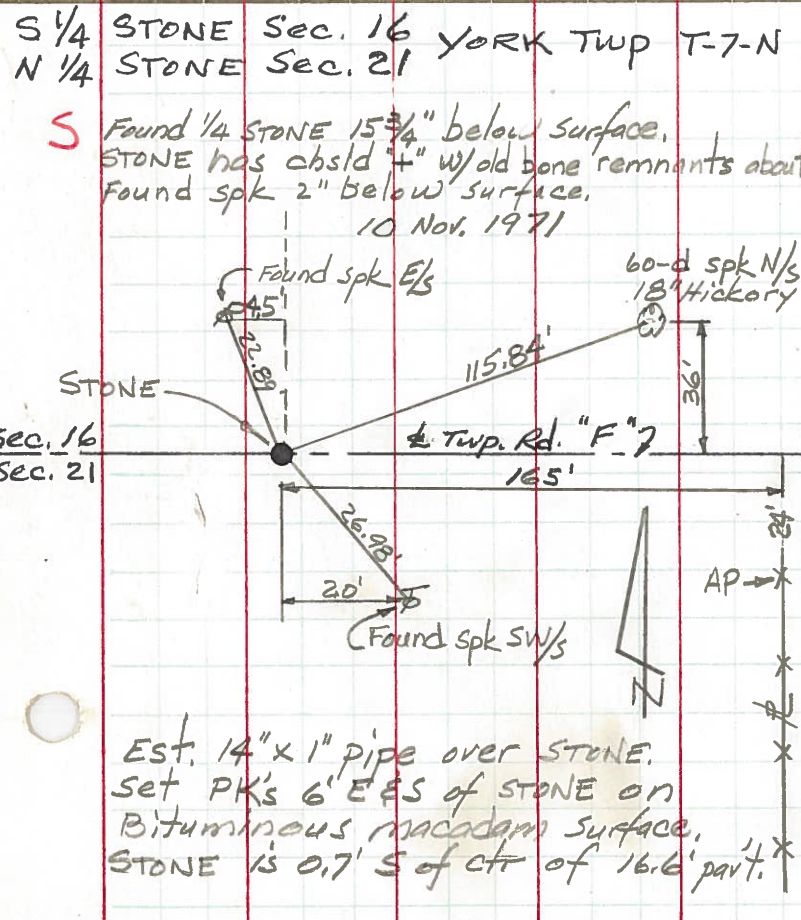 S 1/4 STONE Sec. 16 YORK TWP T-7-N
N 1/4 STONE Sec. 21
S
Found 1/4 STONE 15 3/4" below surface.
STONE has chsld "+" w/old bone remnants about
Found spk 2" below surface.
10 Nov. 1971
Found spk E/s
60-d spk N/s
18" Hickory
4.5'
22.89
115.84'
36'
STONE
Sec. 16
Sec. 21
℄ Twp. Rd. "F"
165'
26.98'
24'
20'
AP
Found spk SW/s
N
Est. 14" x 1" pipe over STONE.
Set PK's 6' E & S of STONE on
Bituminous macadam surface.
STONE is 0.7' S of ctr of 16.6' pav't.